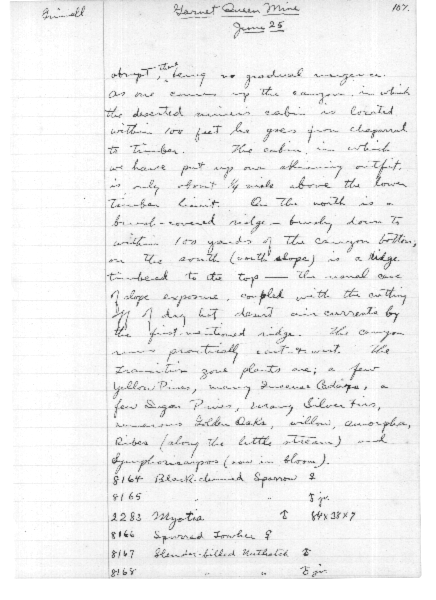 Grinnell
Garnet Queen Mine
107.
June 25
abrupt, there being no gradual mergence.
As one comes up the canyon in which
the deserted miner's cabin is located
within 100 feet he goes from chaparral
to timber. The cabin, in which
we have put up our skinning outfit,
is only about ¼ mile above the lower
timber limit. On the north is a
brush-covered ridge – brushy down to
within 100 yards of the canyon bottom,
on the south (north slope) is a ridge
timbered to the top — the usual case
of slope exposure, coupled with the cutting
off of dry hot desert air currents by
the first-mentioned ridge. The canyon
runs practically east & west. The
Transition zone plants are; a few
Yellow Pines, many Incense Cedars, a
few Sugar Pines, many Silver Firs,
numerous Golden Oaks, willow, amorpha,
Ribes (along the little stream) and
Symphoricarpos (now in bloom).
8164 Black-chinned Sparrow ♀
8165 " " jv.
2283 Myotis 84 x 38 x 7
8166 Spurred Towhee ♀
8167 Slender-billed Nuthatch
8168 " " jv.